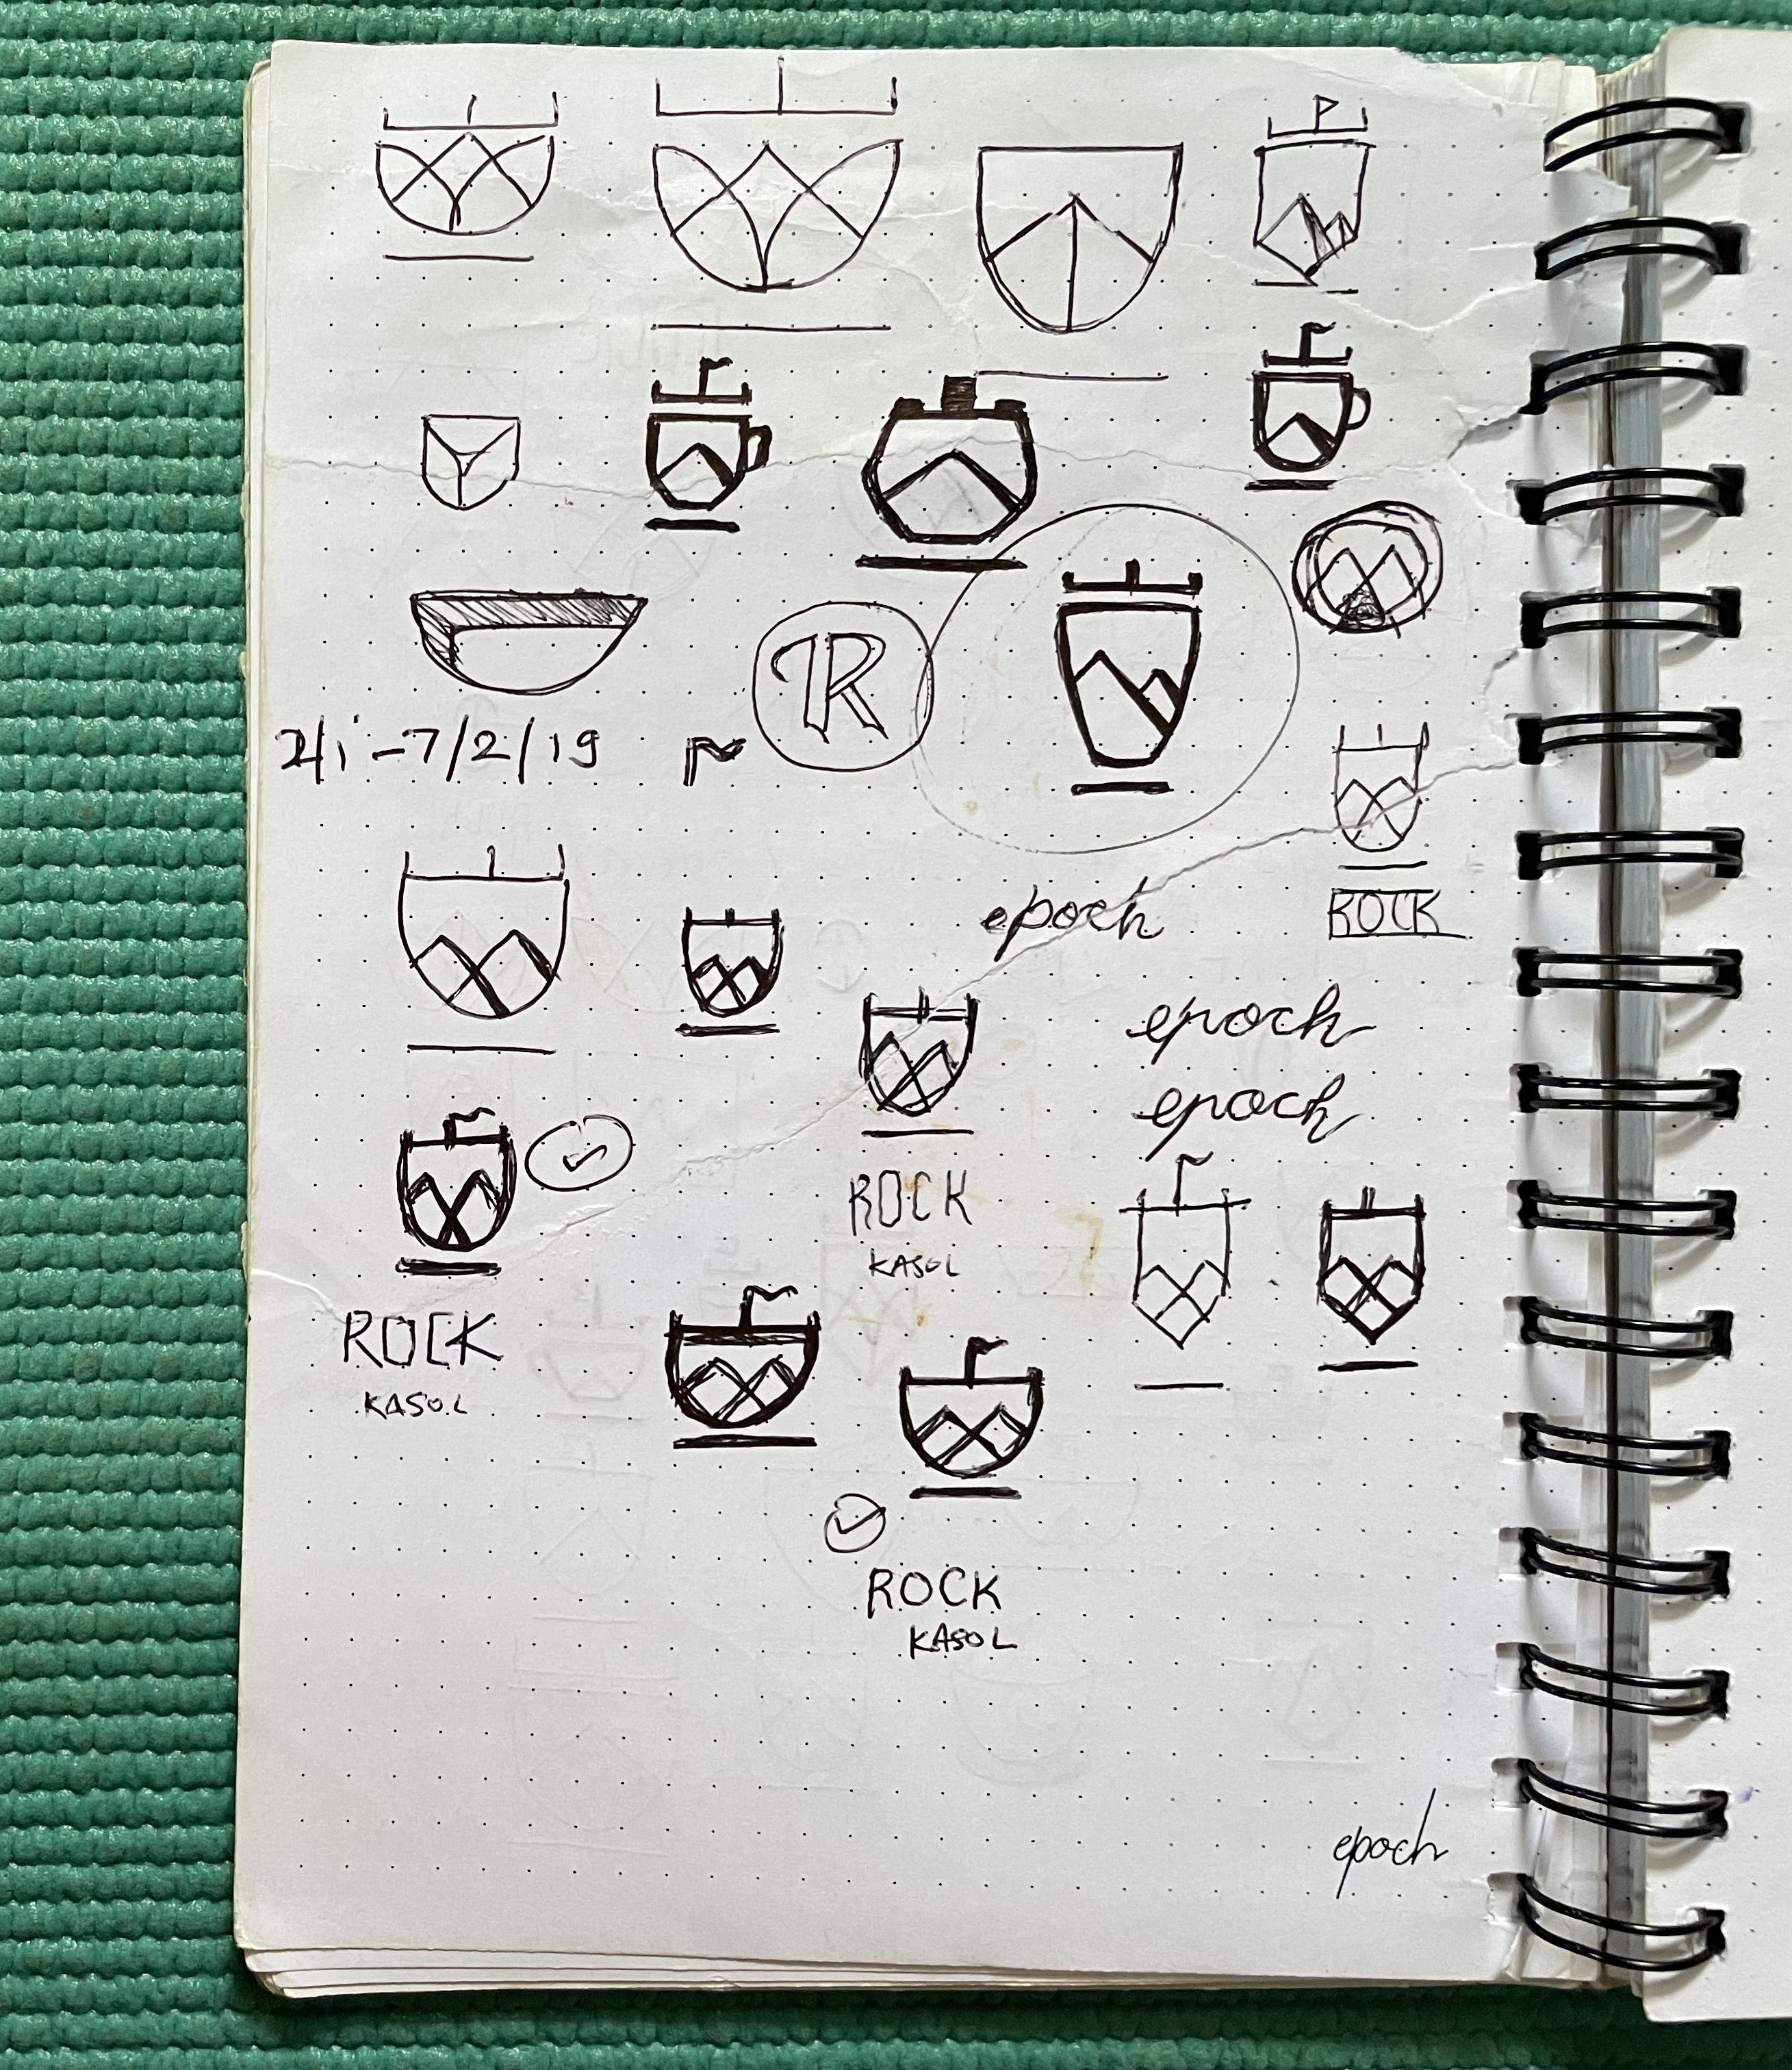 R
-7/2/19
epoch
ROCK
epoch
epoch
ROCK
KASOL
ROCK
KASOL
ROCK
KASOL
epoch